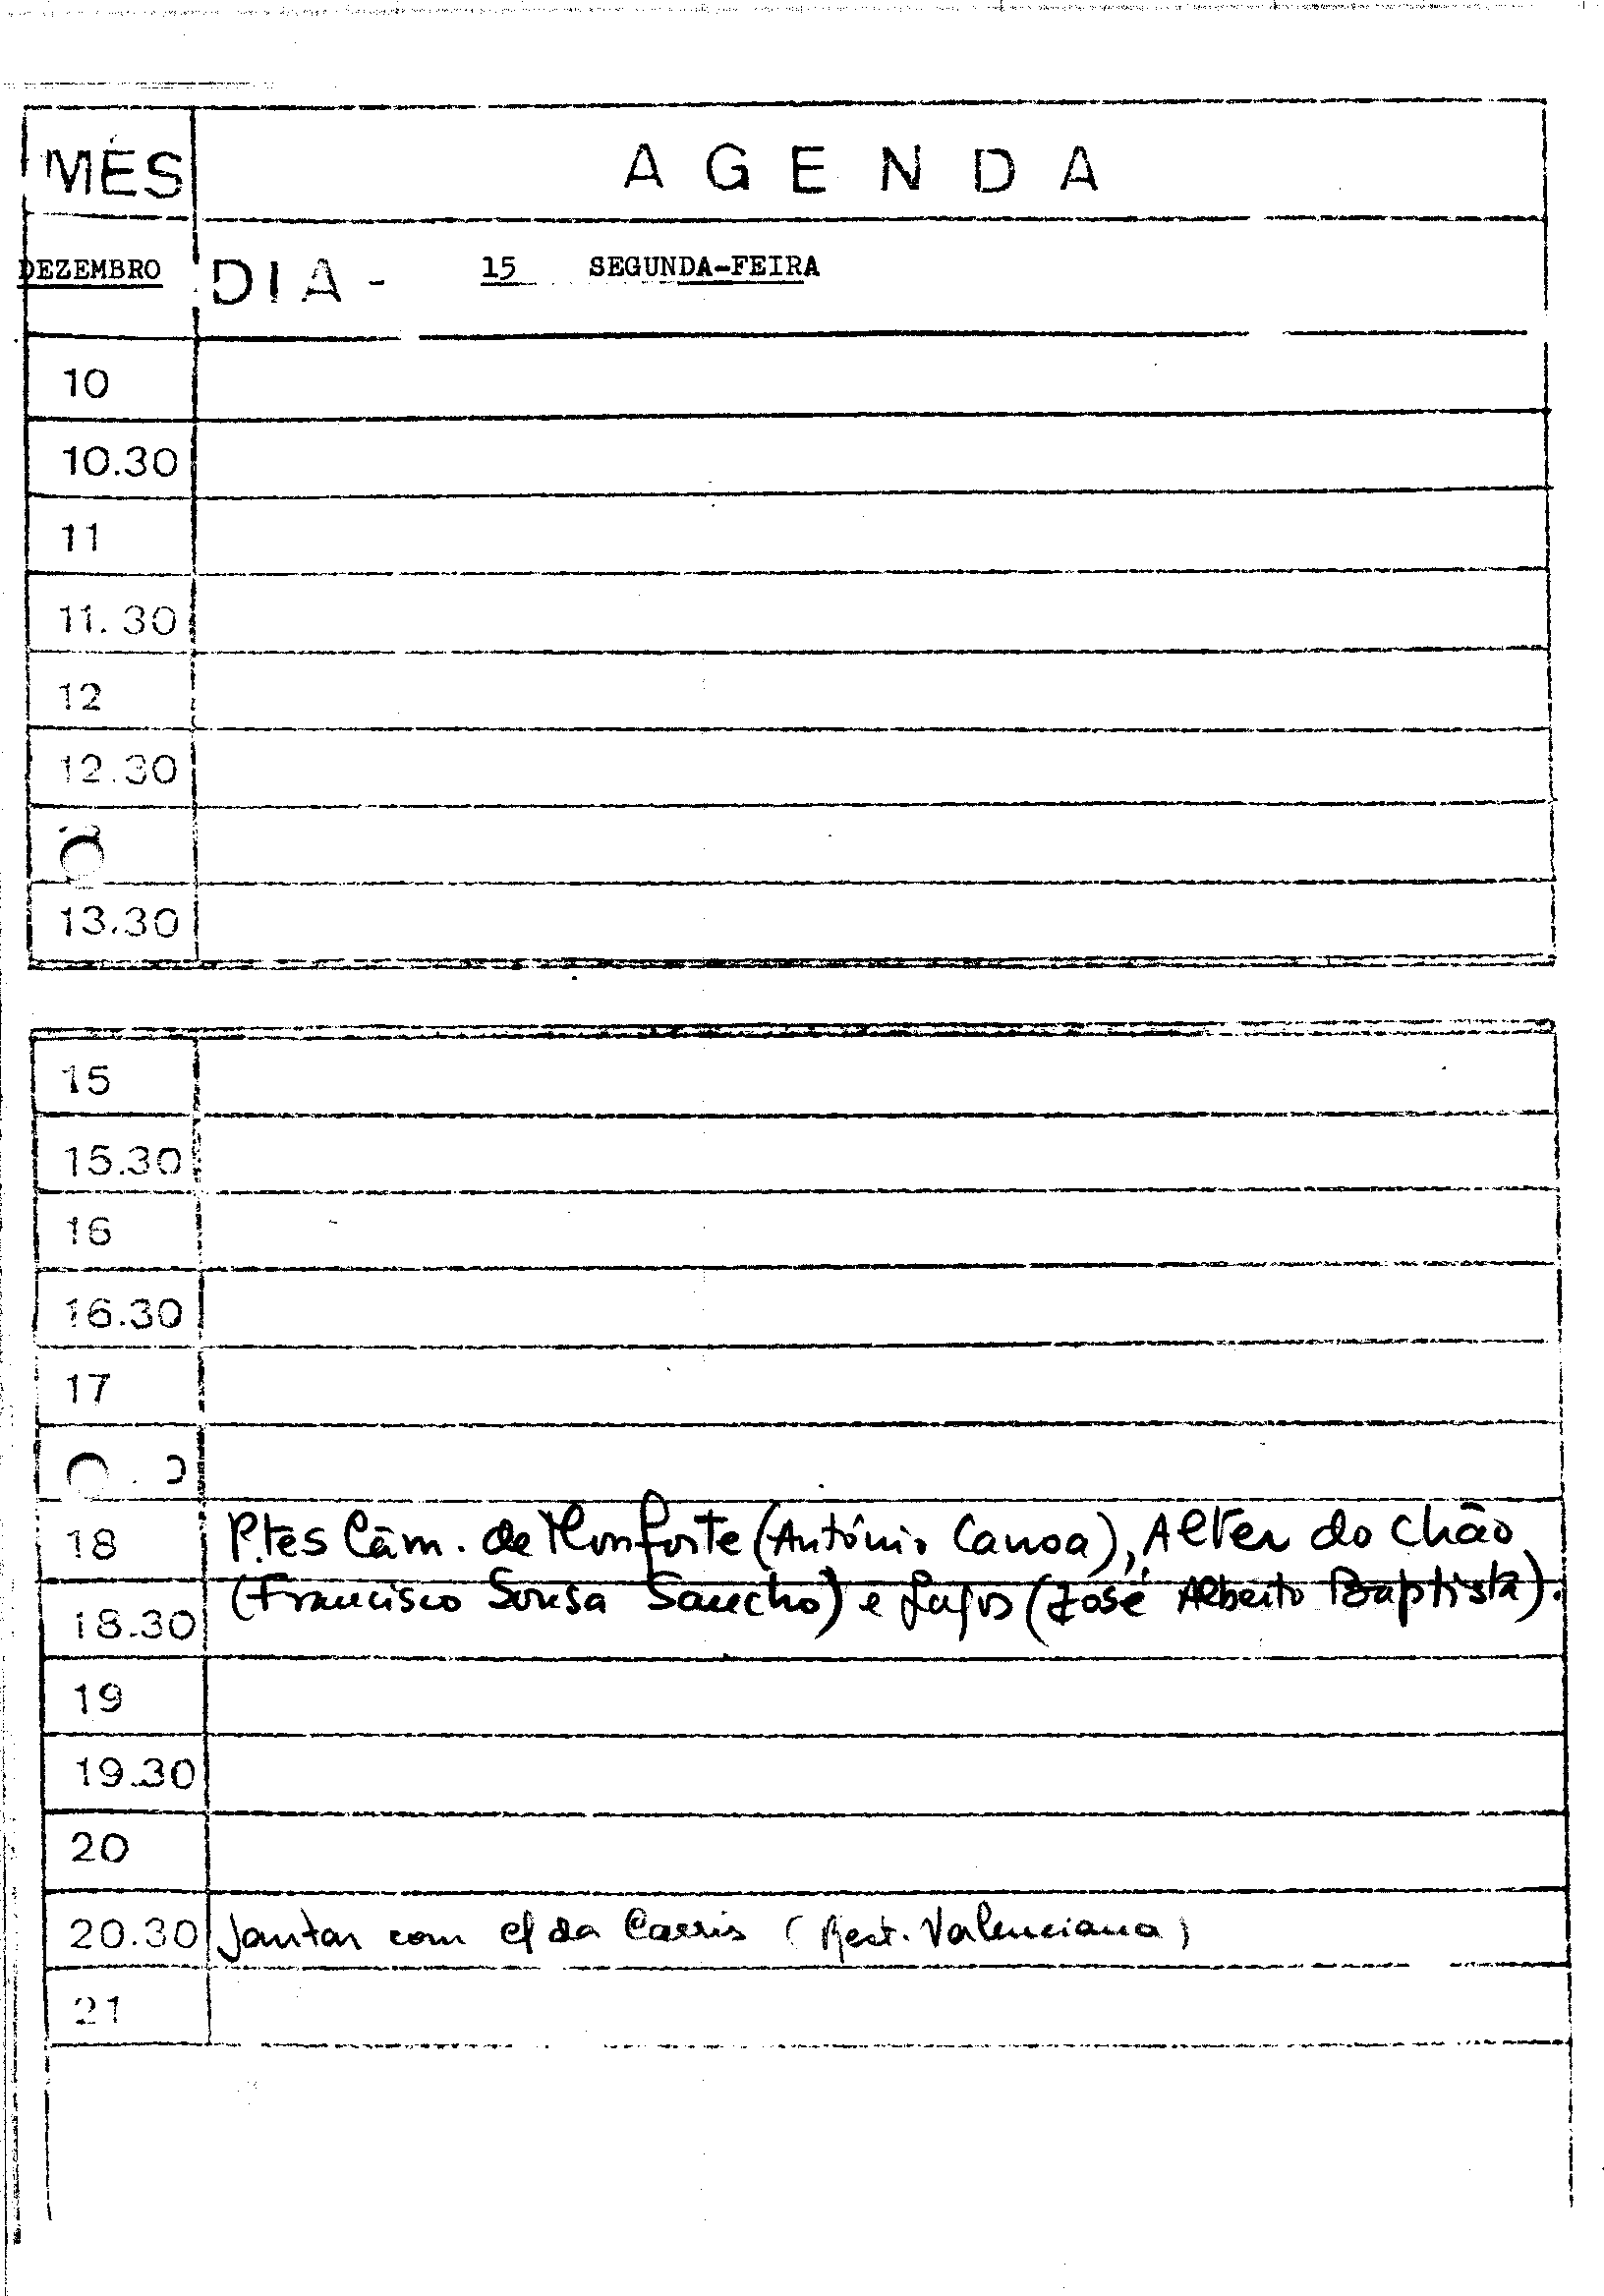 MÊS A G E N D A
DEZEMBRO DIA - 15 SEGUNDA-FEIRA
10
10.30
11
11.30
12
12.30
13.30
15
15.30
16
16.30
17
18 P.tes Câm. de Monforte (António Canoa), Alter do Chão
(Francisco Sousa Sancho) e Lagos (José Alberto Baptista).
18.30
19
19.30
20
20.30 Jantar com da Carris (Rest. Valenciana)
21